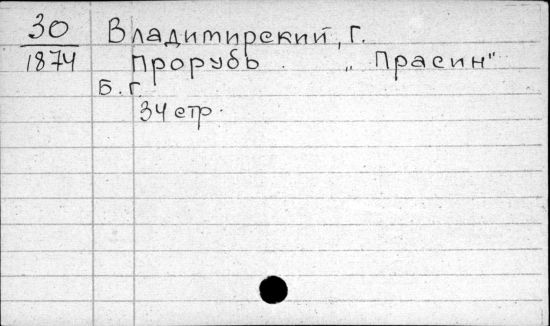 30
1874
Владимирский, Г.
Прорубь. „Прасин"
Б. г.
34 стр.